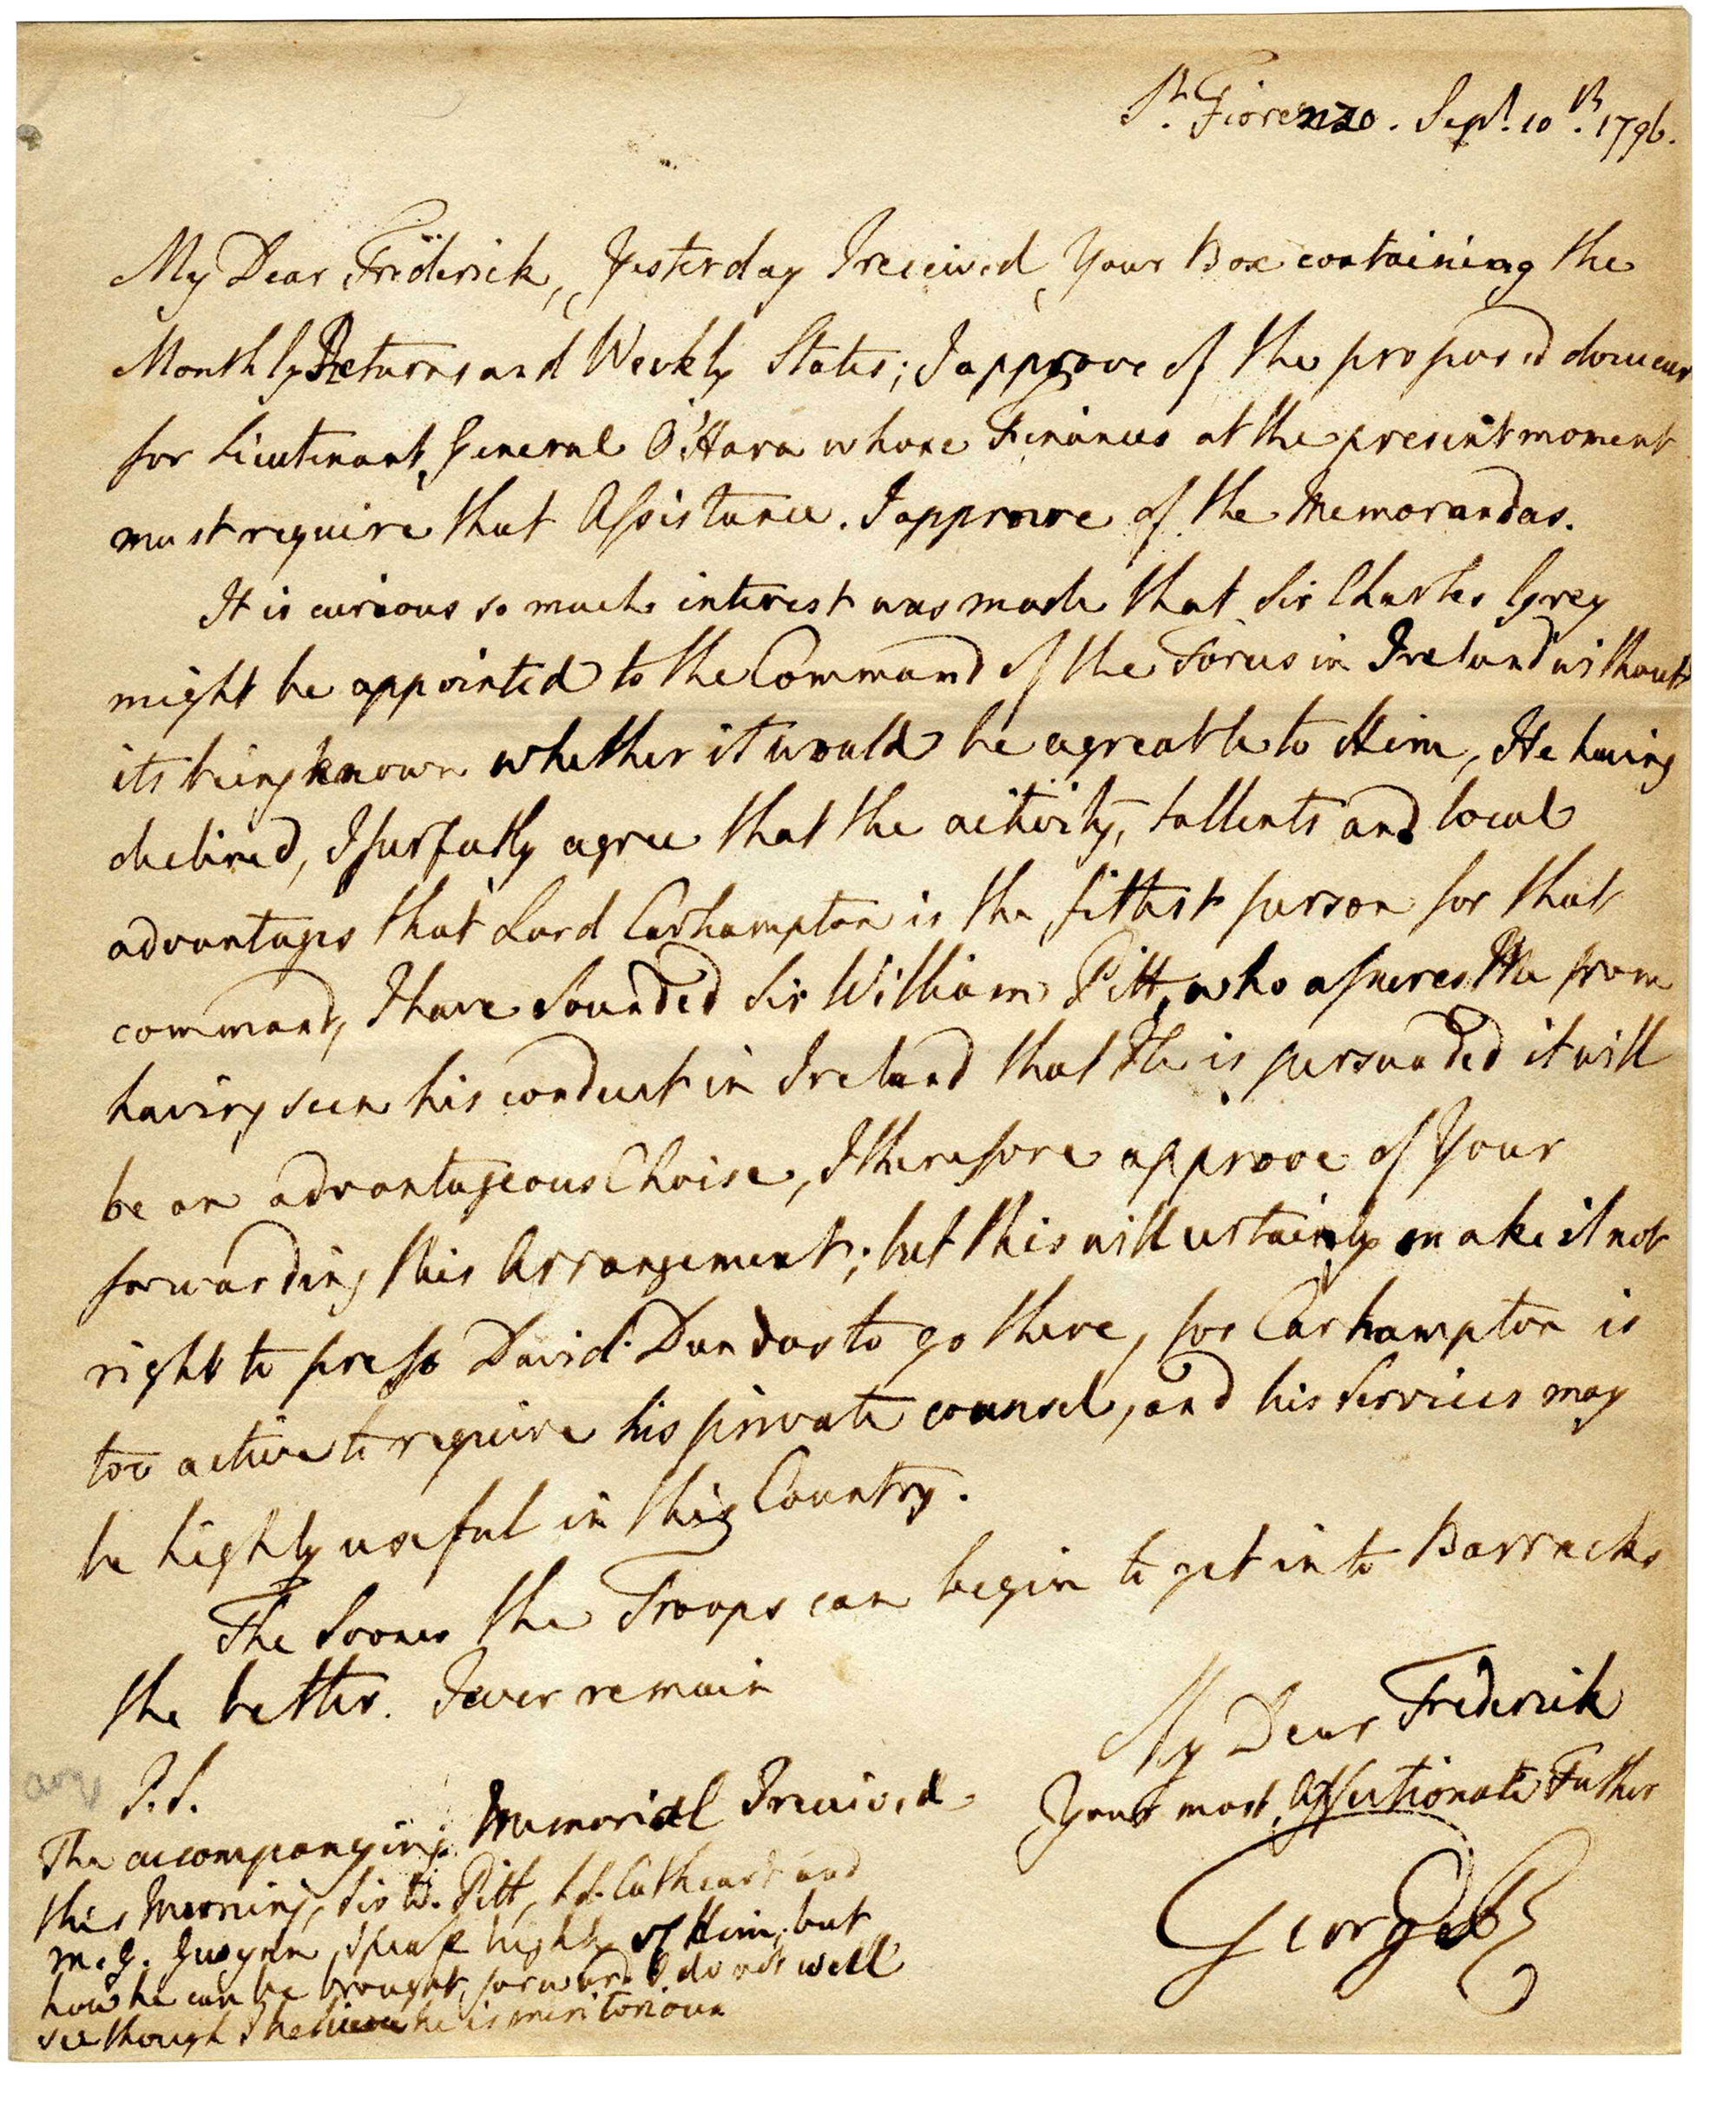 St. Fiorenzo. Sept. 10th. 1796.
My Dear Frederick, Yesterday I received Your Box containing the
Monthly Returns and Weekly States; I approve of the proposed douceur
for Lieutenant General O'Hara whose Finances at the present moment
must require that Assistance. I approve of the Memorandas.
It is curious so much interest was made that Sir Charles Grey
might be appointed to the Command of the Forces in Ireland without
its being known whether it would be agreable to Him, He having
declined, I perfectly agree that the activity, tallents and local
advantages that Lord Carhampton is the fittest person for that
command, I have sounded Sir William Pitt, who assures Me from
having seen his conduct in Ireland that He is persuaded it will
be an advantageous Choise, I therefore approve of Your
forwarding this Arrangement; but this will certainly make it not
right to press David Dundas to go there, for Carhampton is
too active to require his private counsel, and his Services may
be highly useful in this Country.
The Sooner the Troops can begin to get into Barracks
the better. I ever remain
My Dear Frederick
Your most Affectionate Father
George R
P.S.
The accompanying Memorial I received
this Morning, Sir W. Pitt, Ld. Cathcart and
M. G. Gwynn speak highly of Him; but
how he can be brought forward I do not well
see though I believe he is meritorious